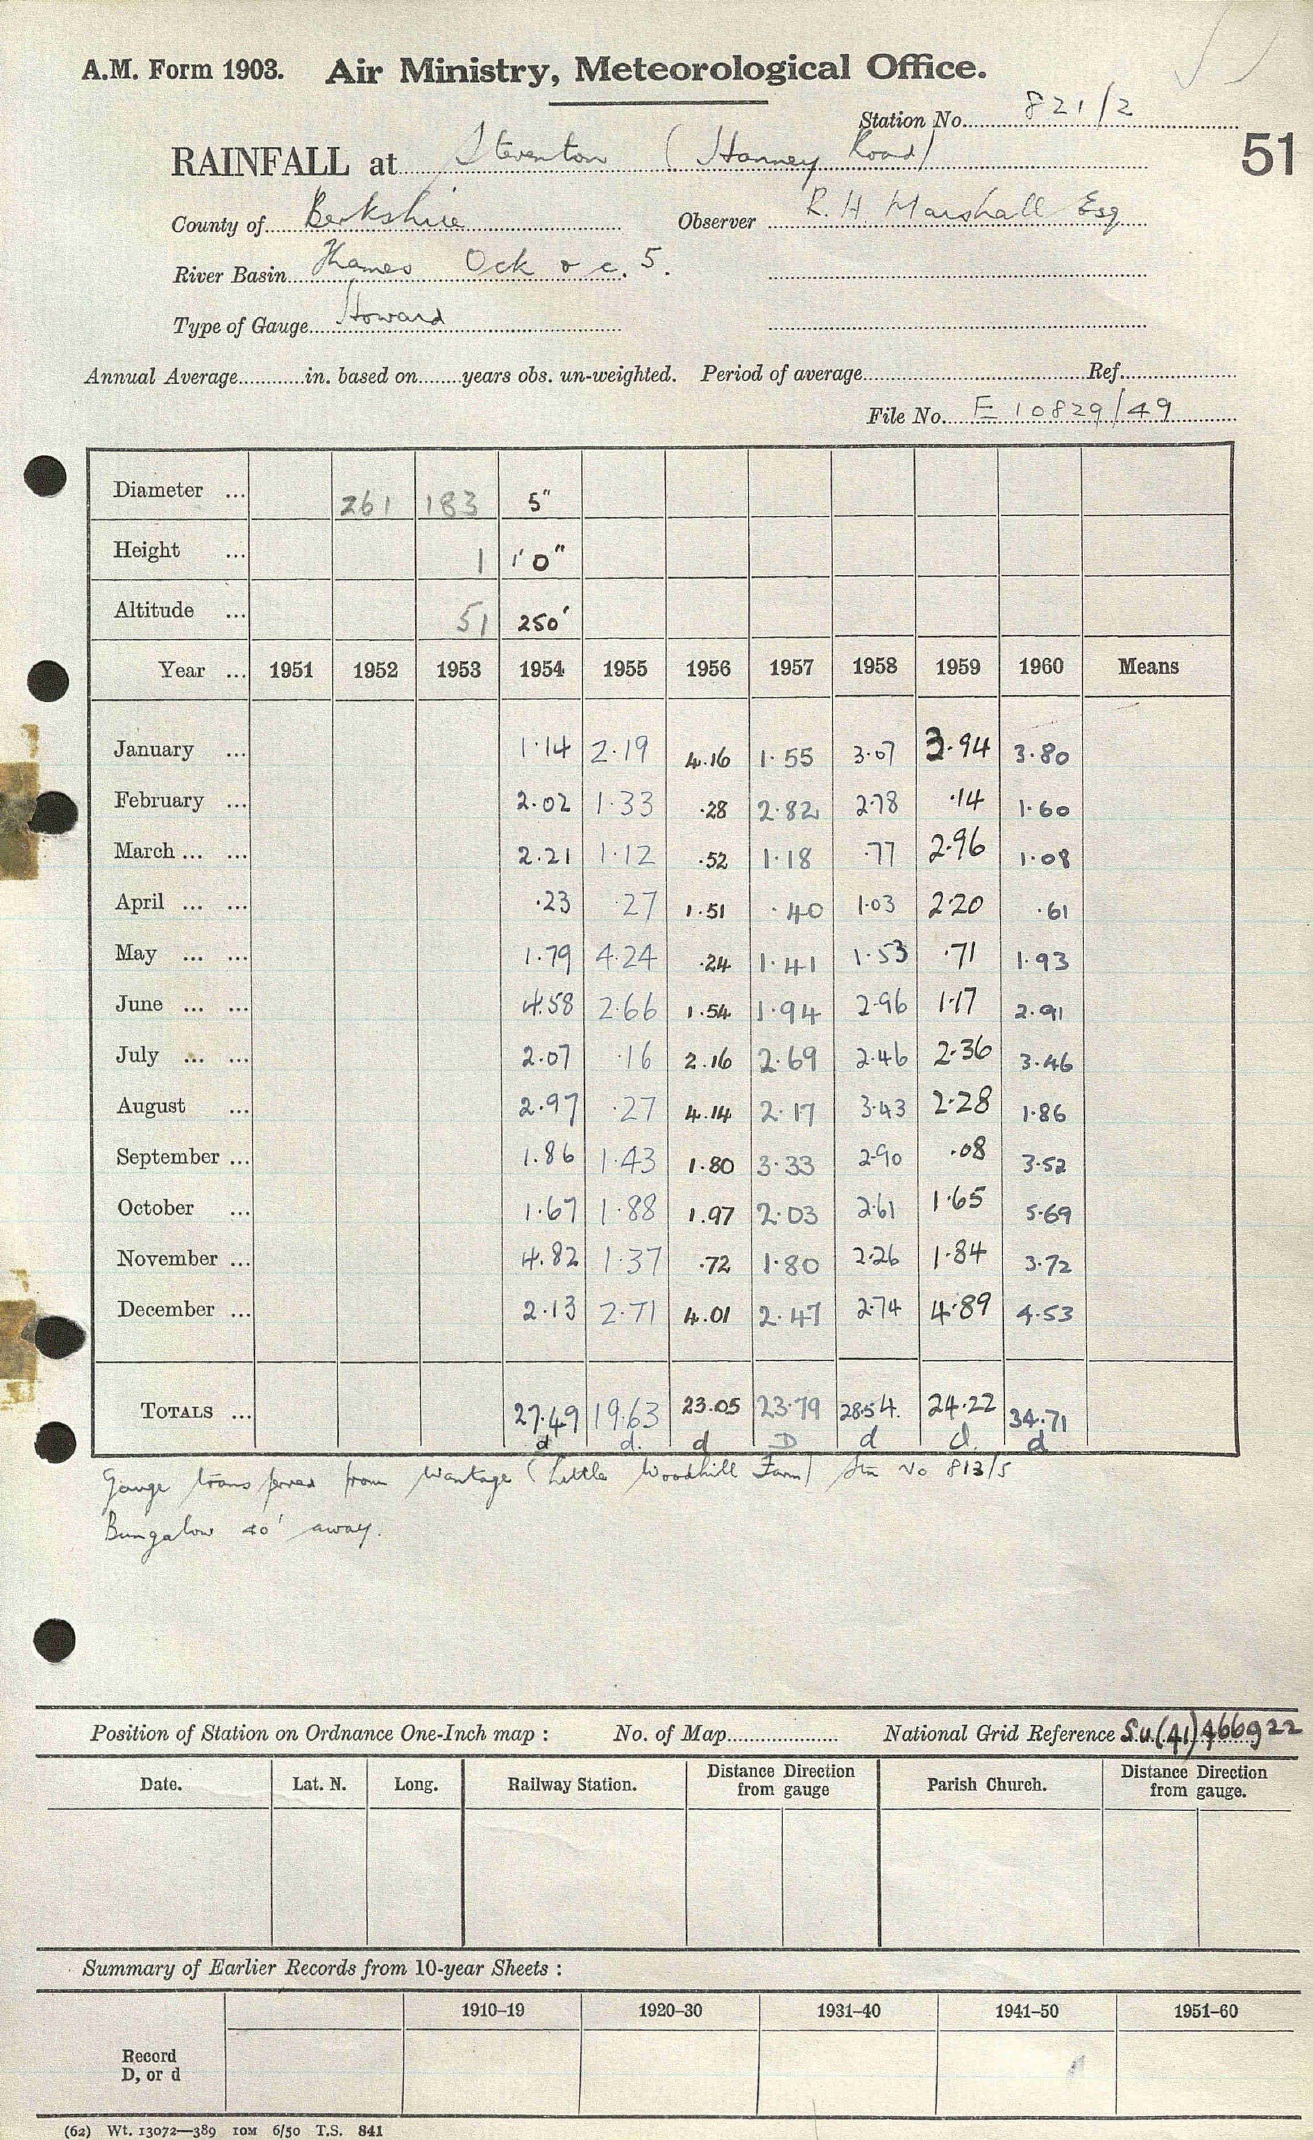 A.M. Form 1903. Air Ministry, Meteorological Office.
Station No. 821/2
RAINFALL at Steventon (Hanney Road)
51
County of Berkshire Observer R. H. Marshall Esq
River Basin Thames Ock & c. 5.
Type of Gauge Howard
Annual Average............in. based on........years obs. un-weighted. Period of average............Ref............
File No. E 10829/49
Diameter ... 261 183 5"
Height ... 1 1'0"
Altitude ... 51 250'
Year ... 1951 1952 1953 1954 1955 1956 1957 1958 1959 1960 Means
January ... 1.14 2.19 4.16 1.55 3.07 3.94 3.80
February ... 2.02 1.33 .28 2.82 2.78 .14 1.60
March ... ... 2.21 1.12 .52 1.18 .77 2.96 1.08
April ... ... .23 .27 1.51 .40 1.03 2.20 .61
May ... ... 1.79 4.24 .24 1.41 1.53 .71 1.93
June ... ... 4.58 2.66 1.54 1.94 2.96 1.17 2.91
July ... ... 2.07 .16 2.16 2.69 2.46 2.36 3.46
August ... 2.97 .27 4.14 2.17 3.43 2.28 1.86
September ... 1.86 1.43 1.80 3.33 2.90 .08 3.52
October ... 1.67 1.88 1.97 2.03 2.61 1.65 5.69
November ... 4.82 1.37 .72 1.80 2.26 1.84 3.72
December ... 2.13 2.71 4.01 2.47 2.74 4.89 4.53
TOTALS ... 27.49 19.63 23.05 23.79 28.54. 24.22 34.71
d d. d D d d. d
Gauge transferred from Wantage (Little Woodhill Farm) Stn No 813/5
Bungalow 40' away.
Position of Station on Ordnance One-Inch map : No. of Map.................... National Grid Reference S.U.(41)466922
Date. Lat. N. Long. Railway Station. Distance Direction from gauge Parish Church. Distance Direction from gauge.
Summary of Earlier Records from 10-year Sheets :
1910–19 1920–30 1931–40 1941–50 1951–60
Record
D, or d
(62) Wt. 13072—389 10M 6/50 T.S. 841